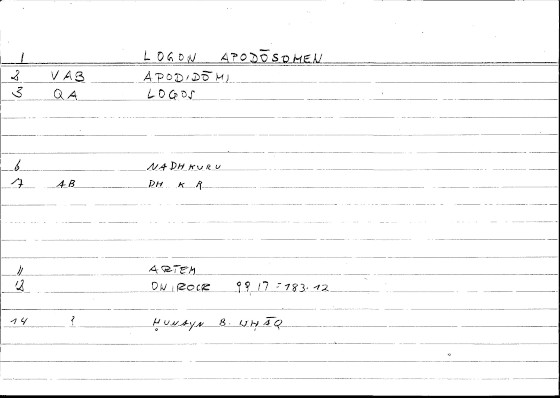 1 LOGON APODŌSOMEN
2 VAB APODIDŌMI
3 QA LOGOS
6 NADHKURU
7 AB DH K R
11 ARTEM
12 ONIROCR 99,17=183.12
14 ? ḤUNAYN B. ISḤĀQ